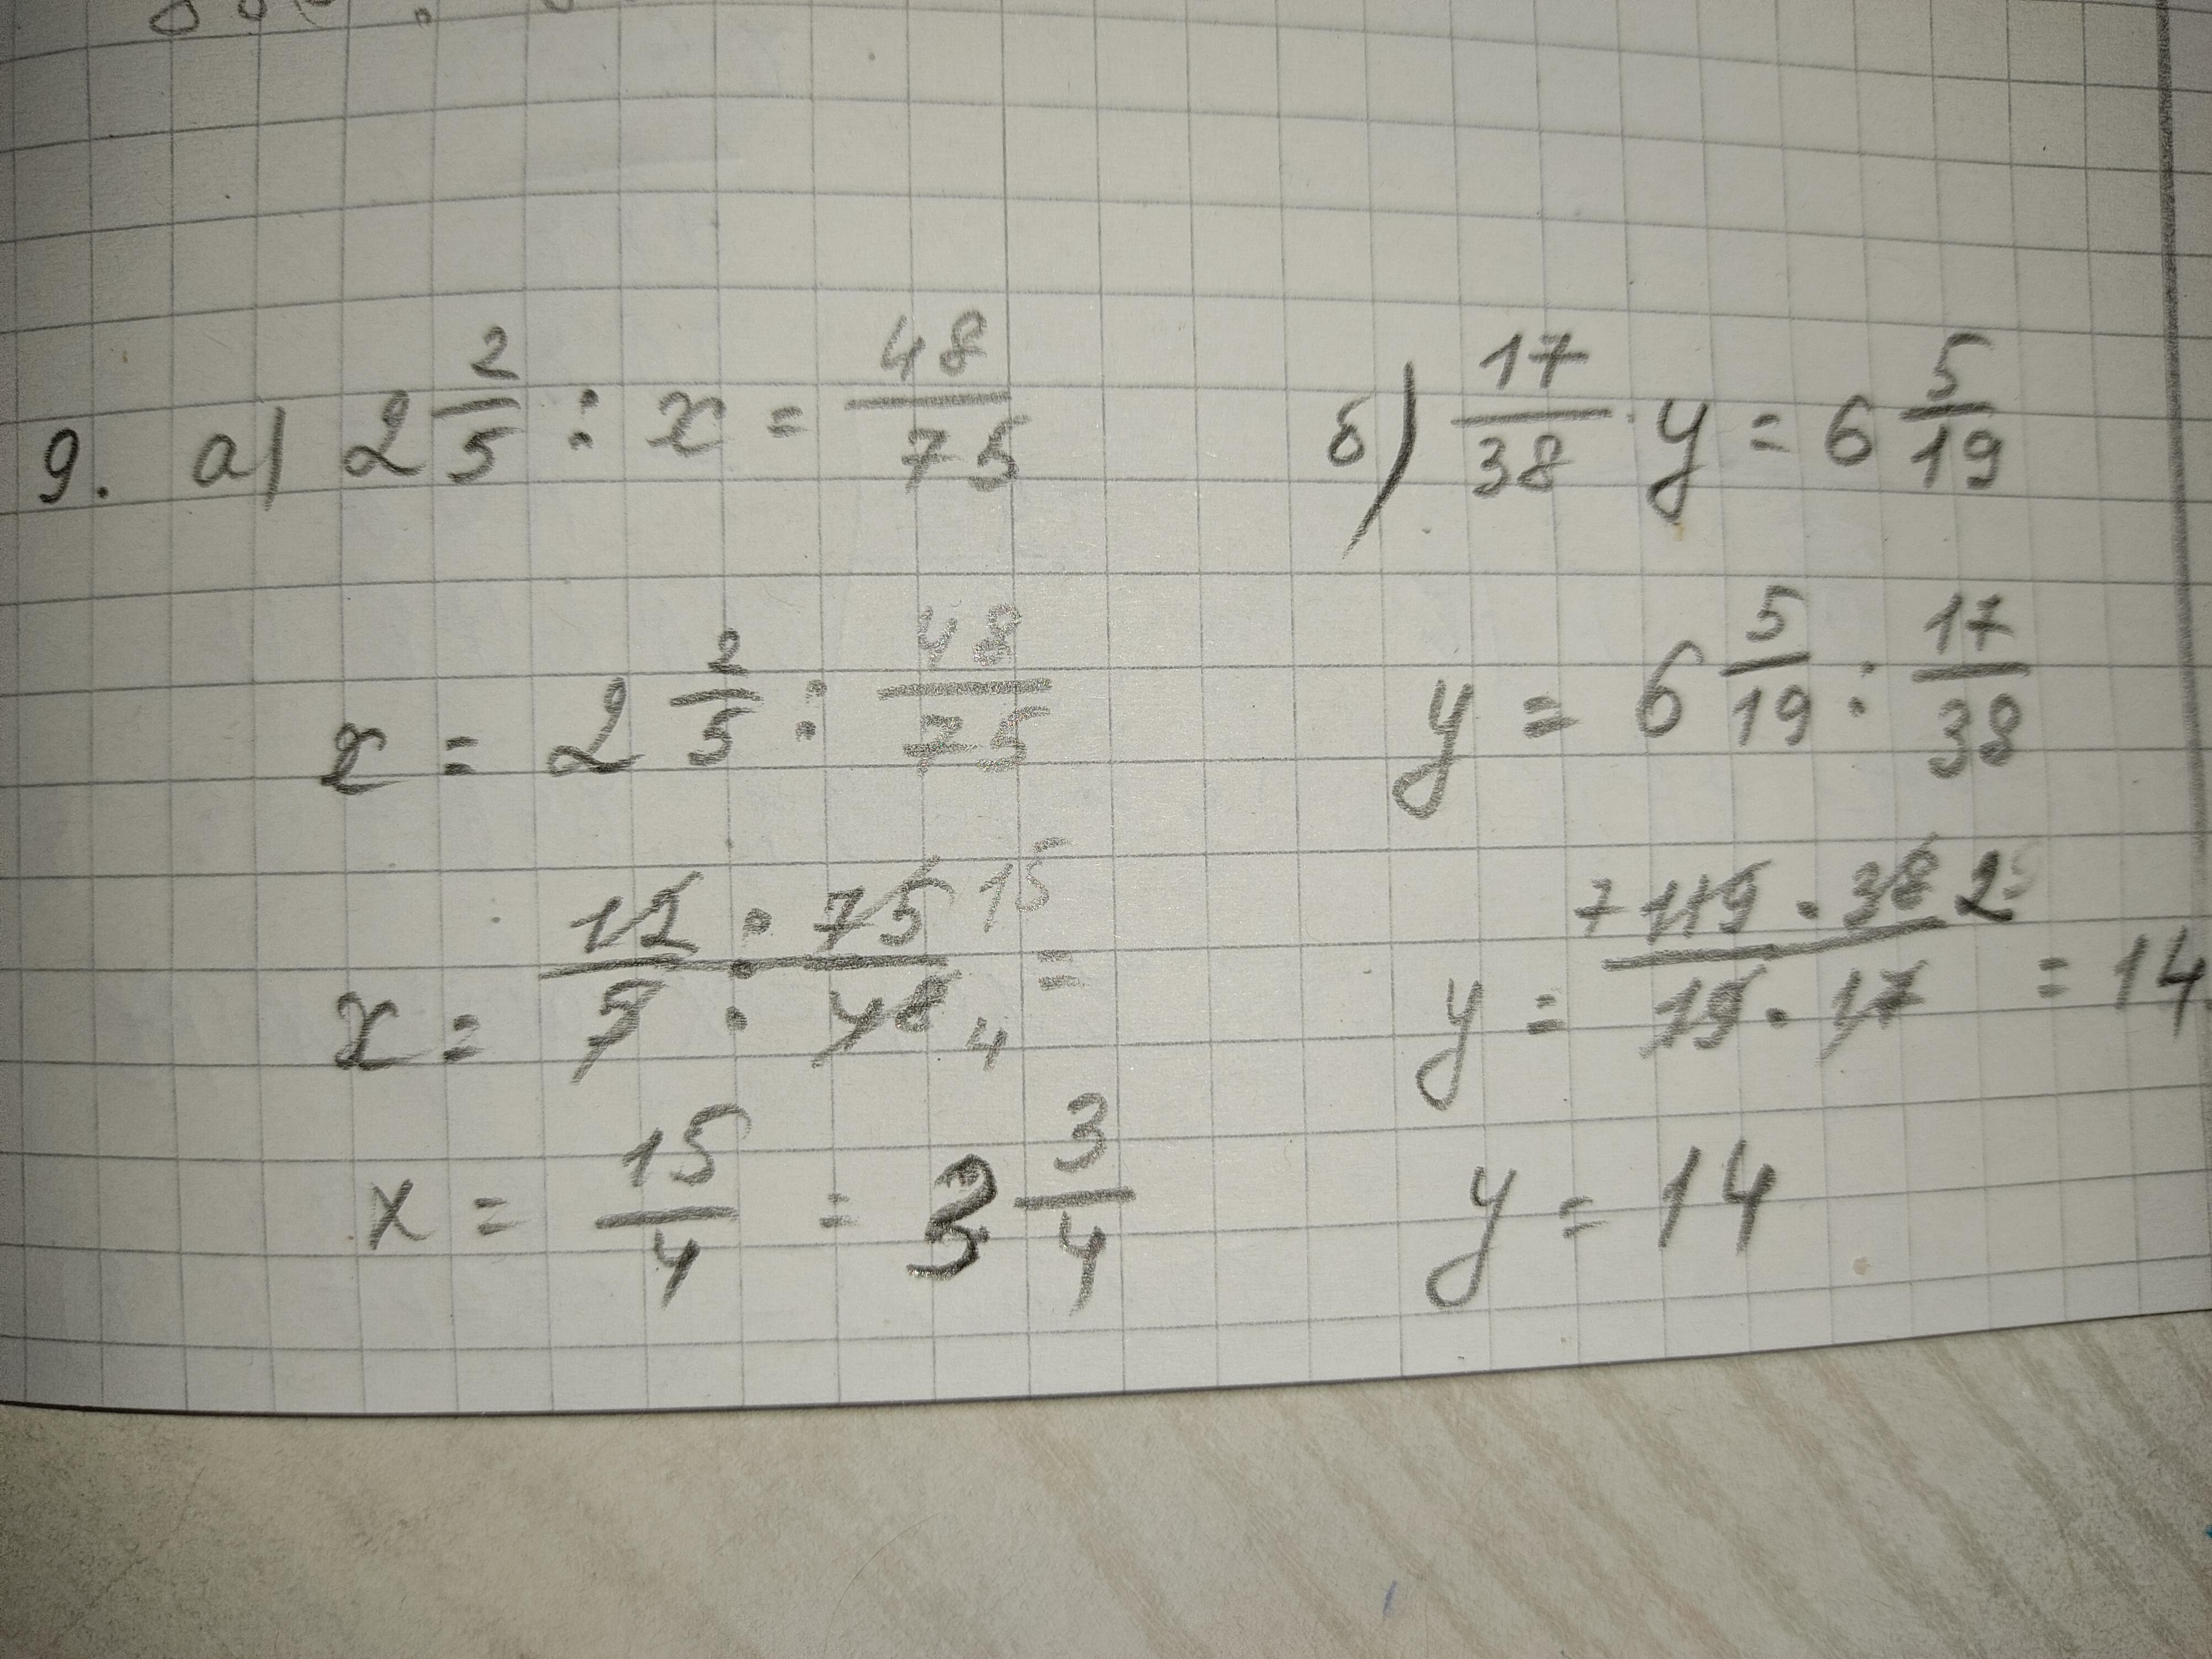 9. а) 2 2/5 : x = 48/75
x = 2 2/5 : 48/75
x = 12 : 75 15 / 5 : 48 4 =
x = 15/4 = 3 3/4
б) 17/38 · y = 6 5/19
y = 6 5/19 : 17/38
y = 7 119 · 38 2 / 19 · 17 = 14
y = 14